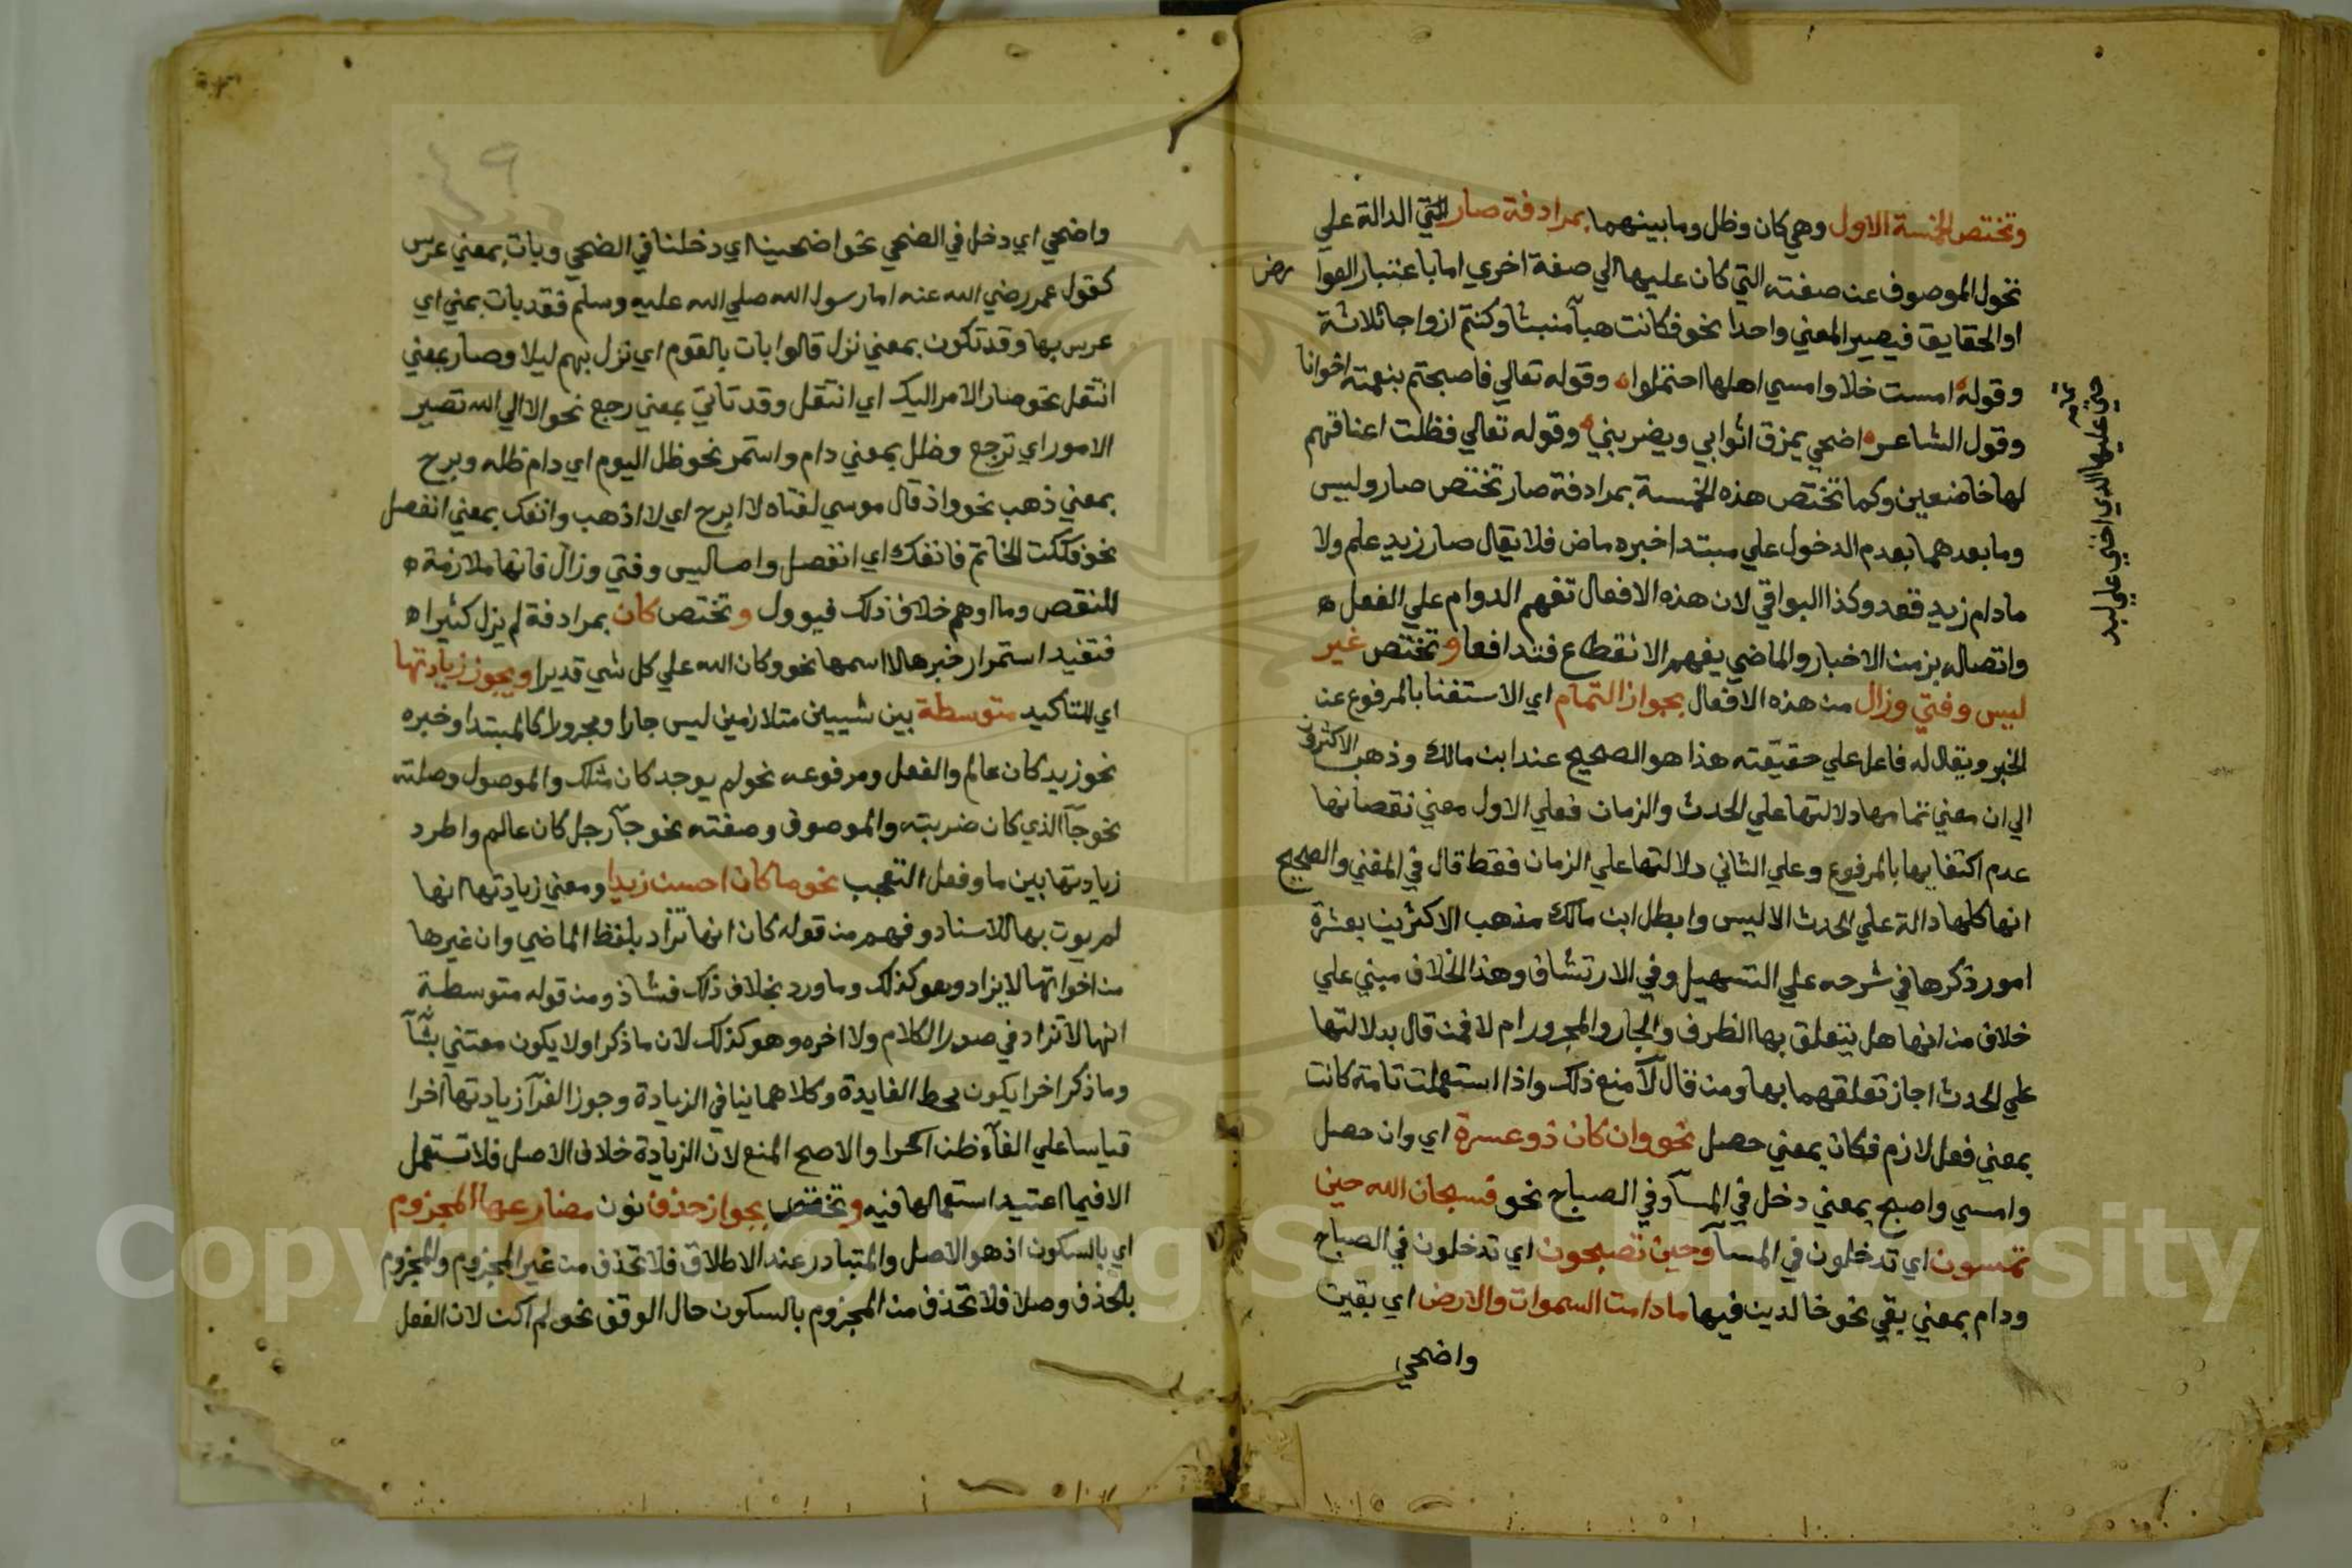 وتختص الخمسة الاول وهي كان وظل وما بينهما بمرادفة صار التي الدالة علي
تحول الموصوف عن صفته التي كان عليها الي صفة اخري اما باعتبار العوا رض
او الحقايق فيصير المعني واحدا نحو فكانت هبآ منبثا وكنتم ازواجا ثلاثة
وقوله امست خلا وامسي اهلها احتملوا وقوله تعالي فاصبحتم بنعمته اخوانا
خني عليها الذي اخني علي لبد
وقول الشاعر اضحي يمزق اثوابي ويضربني وقوله تعالي فظلت اعناقهم
لها خاضعين وكما تختص هذه الخمسة بمرادفة صار تختص صار وليس
وما بعدهما بعدم الدخول علي مبتدا خبره ماض فلا يقال صار زيد علم ولا
ما دام زيد قعد وكذا البواقي لان هذه الافعال تفهم الدوام علي الفعل
واتصاله بزمن الاخبار والماضي يفهم الانقطاع فتدافعا وتختص غير
ليس وفتي وزال من هذه الافعال بجواز التمام اي الاستغنا بالمرفوع عن
الخبر ويقال له فاعل علي حقيقته هذا هو الصحيح عند ابن مالك وذهب الاكثرون
الي ان معني تمامها دلالتها علي الحدث والزمان فعلي الاول معني نقصانها
عدم اكتفايها بالمرفوع وعلي الثاني دلالتها علي الزمان فقط قال في المغني والصحيح
انها كلها دالة علي الحدث الا ليس وابطل ابن مالك مذهب الاكثرين بعشرة
امور ذكرها في شرحه علي التسهيل وفي الارتشاف وهذا الخلاف مبني علي
خلاف من انها هل يتعلق بها الظرف والجار والمجرور ام لا فمن قال بدلالتها
علي الحدث اجاز تعلقهما بها ومن قال لا منع ذلك واذا استعملت تامة كانت
بمعني فعل لازم فكان بمعني حصل نحو وان كان ذو عسرة اي وان حصل
وامسي واصبح بمعني دخل في المسآ وفي الصباح نحو فسبحان الله حين
تمسون اي تدخلون في المسآ وحين تصبحون اي تدخلون في الصباح
ودام بمعني بقي نحو خالدين فيها ما دامت السموات والارض اي بقيت
واضحي
٤٩
واضحي اي دخل في الضحي نحو اضحينا اي دخلنا في الضحي وبات بمعني عرس
كقول عمر رضي الله عنه اما رسول الله صلي الله عليه وسلم فقد بات بمني اي
عرس بها وقد تكون بمعني نزل قالوا بات بالقوم اي نزل بهم ليلا وصار بمعني
انتقل نحو صار الامر اليك اي انتقل وقد تاتي بمعني رجع نحو الا الي الله تصير
الامور اي ترجع وظل بمعني دام واستمر نحو ظل اليوم اي دام ظله وبرح
بمعني ذهب نحو واذ قال موسي لفتاه لا ابرح اي لا اذهب وانفك بمعني انفصل
نحو فككت الخاتم فانفك اي انفصل واما ليس وفتي وزال فانها ملازمة
للنقص وما اوهم خلاف ذلك فيوول وتختص كان بمرادفة لم يزل كثيرا
فتفيد استمرار خبرها لاسمها نحو وكان الله علي كل شي قديرا ويجوز زيادتها
اي للتاكيد متوسطة بين شيين متلازمين ليس جارا ومجرورا كالمبتدا وخبره
نحو زيد كان عالم والفعل ومرفوعه نحو لم يوجد كان مثلك والموصول وصلته
نحو جآ الذي كان ضربته والموصوف وصفته نحو جآ رجل كان عالم واطرد
زيادتها بين ما وفعل التعجب نحو ما كان احسن زيدا ومعني زيادتها انها
لم يوت بها للاسناد وفهم من قوله كان انها تزاد بلفظ الماضي وان غيرها
من اخواتها لا يزاد وهو كذلك وما ورد بخلاف ذلك فشاذ ومن قوله متوسطة
انها لا تزاد في صدر الكلام ولا اخره وهو كذلك لان ما ذكر اولا يكون معتني بشآ
وما ذكر اخرا يكون محط الفايدة وكلاهما ينافي الزيادة وجوز الفرآ زيادتها اخرا
قياسا علي الغآء ظن اخرا والاصح المنع لان الزيادة خلاف الاصل فلا تستعمل
الا فيما اعتيد استعمالها فيه وتختص بجواز حذف نون مضارعها المجزوم
اي بالسكون اذ هو الاصل والمتبادر عند الاطلاق فلا تحذف من غير المجزوم والمجزوم
بالحذف وصلا فلا تحذف من المجزوم بالسكون حال الوقف نحو لم اكن لان الفعل
Copyright © King Saud University